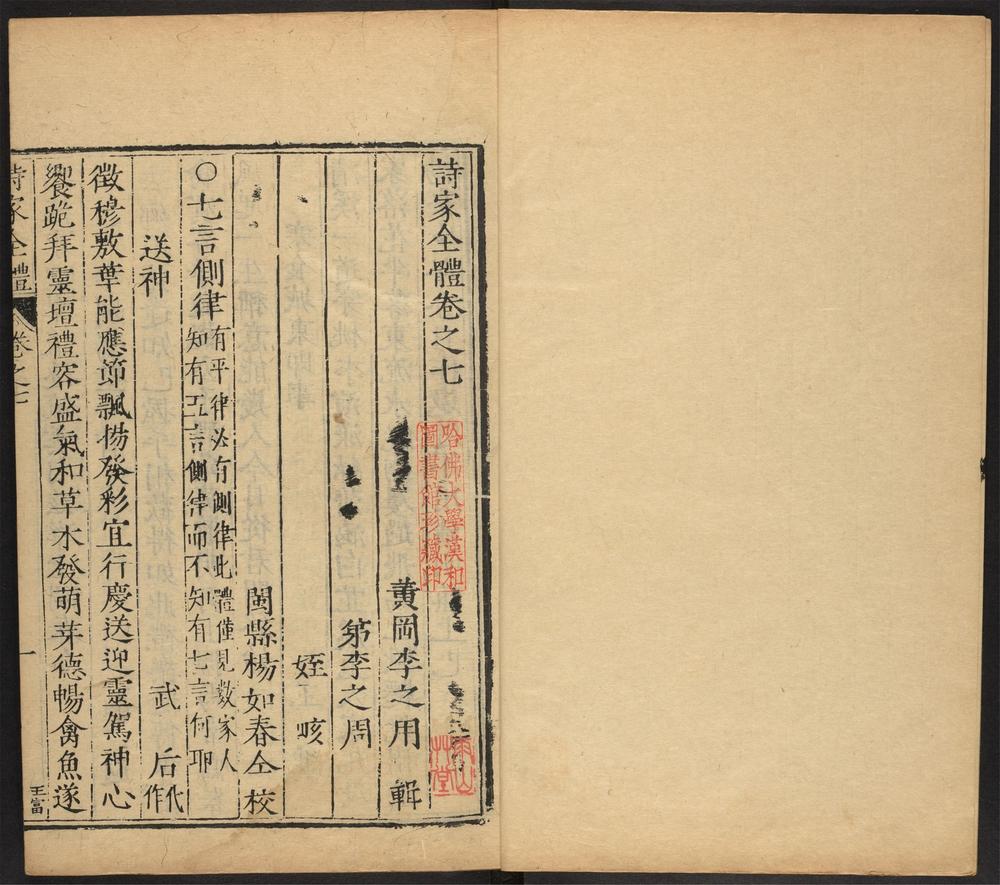 詩家全體卷之七
黃岡李之用 輯
弟李之周
姪 咳
閩縣楊如春仝校
○七言側律有平律必有側律此體僅見數家人
知有五言側律而不知有七言何耶
送神 武后代作
徵穆敷華能應節飄揚發彩宜行慶送迎靈駕神心
饗跪拜靈壇禮容盛氣和草木發萌芽德暢禽魚遂
詩家全體 卷之七 一
王富
哈佛大學漢和
圖書館珍藏印
艸堂